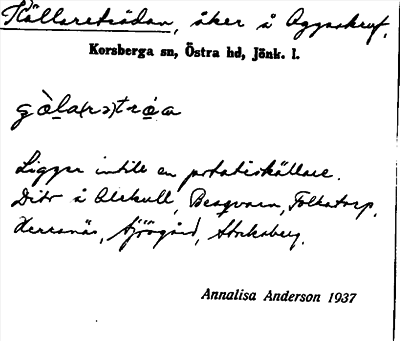 Källareträdan, åker å Aggaskruv.
Korsberga sn, Östra hd, Jönk. l.
Ligger intill en potatiskällare.
Ditr å Alekull, Bragvarn, Folkatorp,
Herranäs, Sjögård, Stocksberg.
Annalisa Anderson 1937